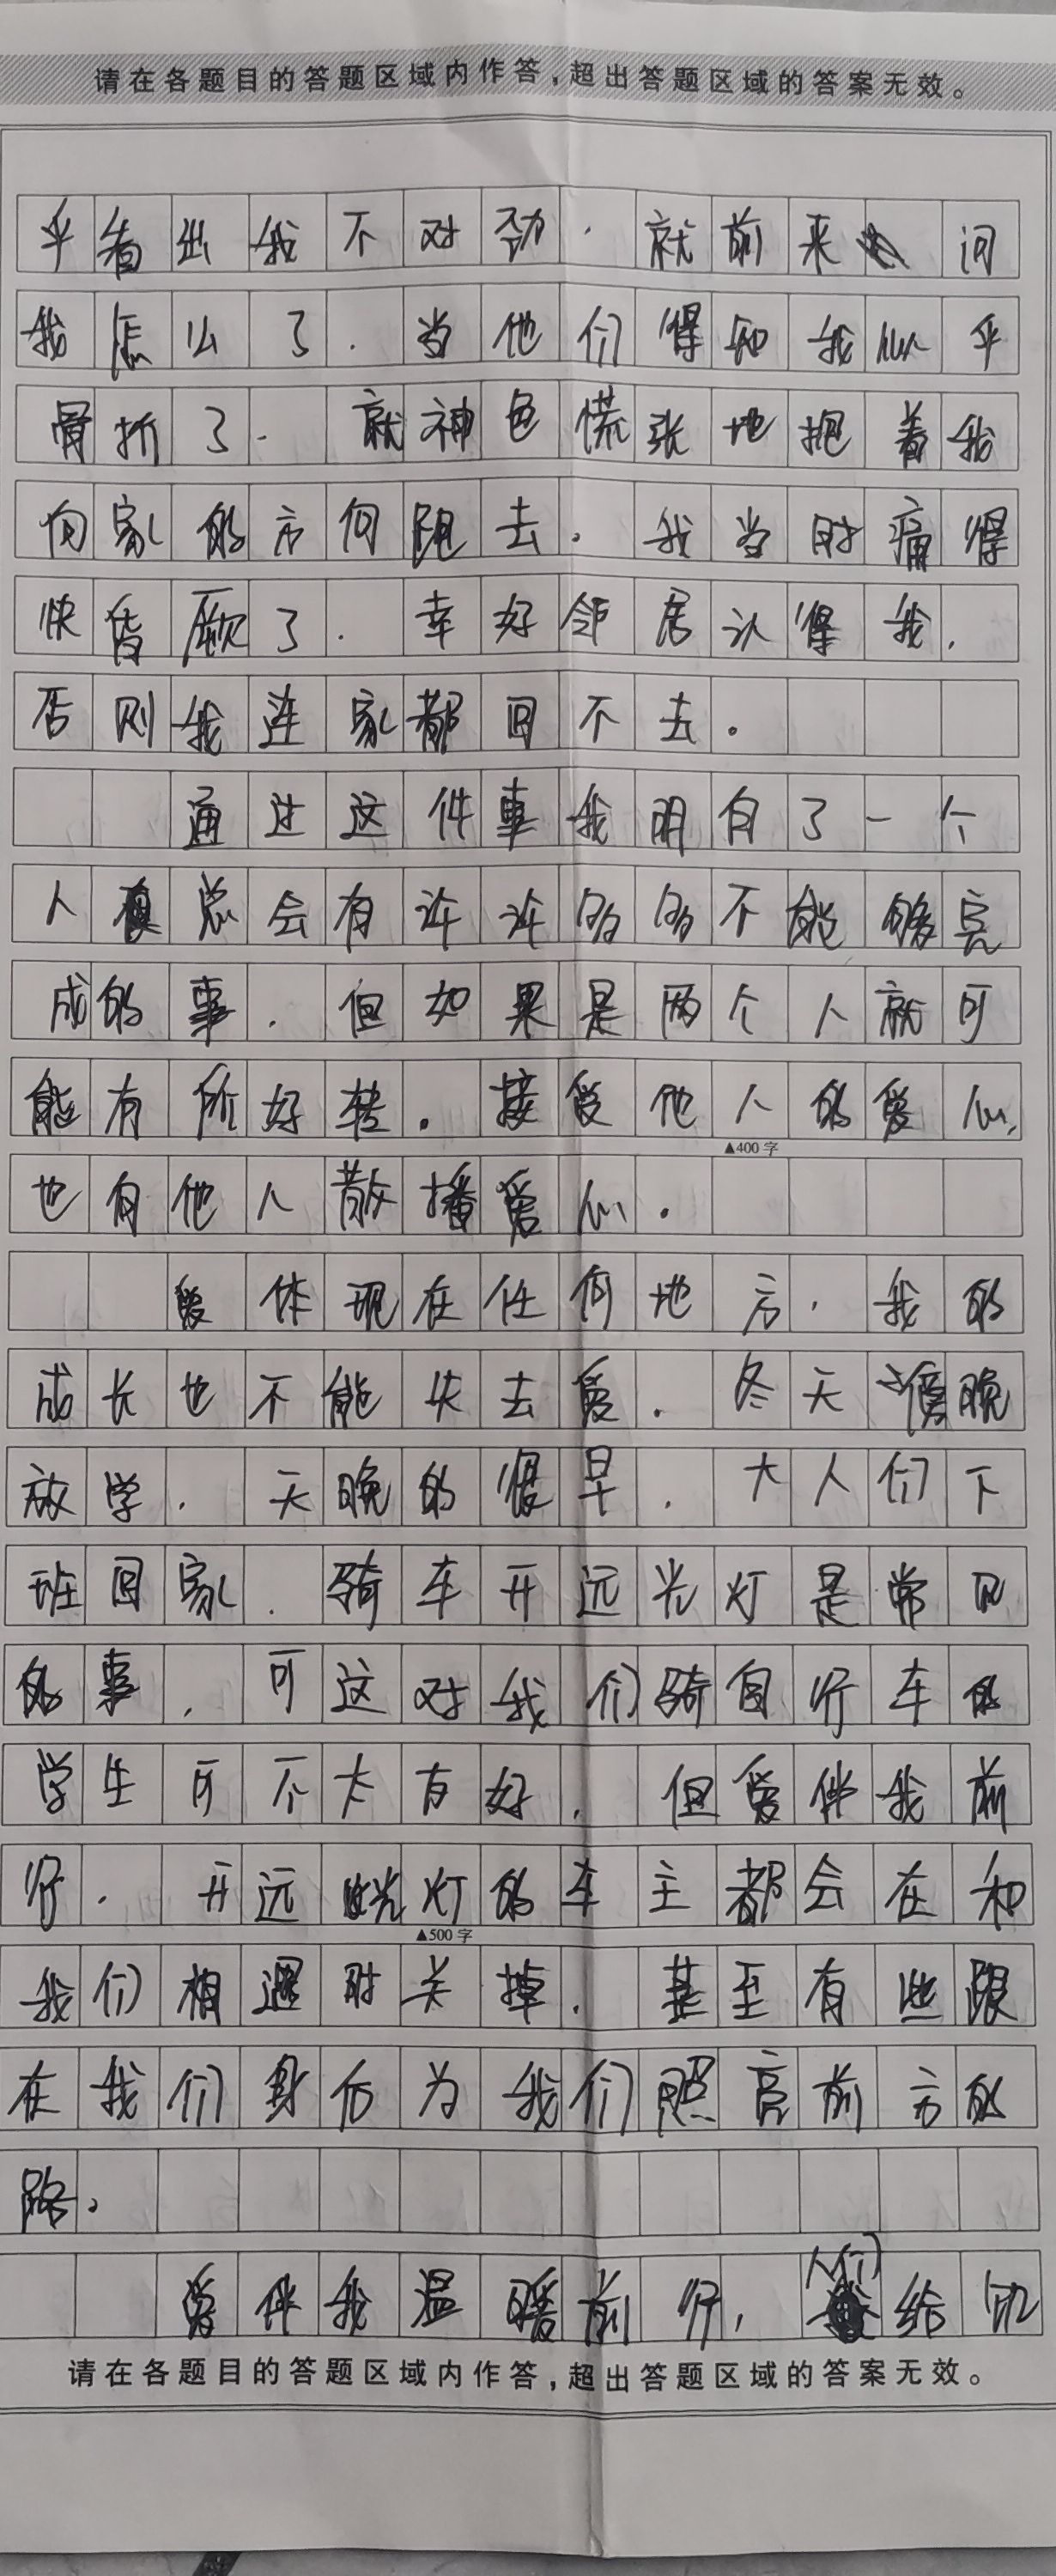 请在各题目的答题区域内作答,超出答题区域的答案无效。
乎看出我不对劲,就前来问
我怎么了.当他们得知我似乎
骨折了.就神色慌张地抱着我
向家的方向跑去。我当时痛得
快昏厥了.幸好邻居认得我,
否则我连家都回不去。
通过这件事我明白了一个
人总会有许许多多不能够完
成的事,但如果是两个人就可
能有所好转。接受他人的爱心,
▲400字
也向他人散播爱心.
爱体现在任何地方,我的
成长也不能失去爱.冬天傍晚
放学,天晚的很早,大人们下
班回家.骑车开远光灯是常见
的事,可这对我们骑自行车的
学生可不太友好,但爱伴我前
行.开远光灯的车主都会在和
▲500字
我们相遇时关掉.甚至有些跟
在我们身后为我们照亮前方的
路。
爱伴我温暖前行,人们给
请在各题目的答题区域内作答,超出答题区域的答案无效。